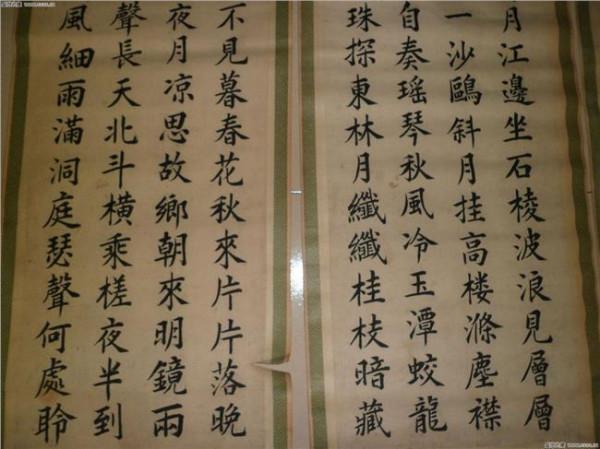 月江邊坐石棱波浪見層層
一沙鷗斜月挂高楼滌塵襟
自奏瑶琴秋風冷玉潭蛟龍
珠探東林月纖纖桂枝暗藏
不見暮春花秋來片片落晚
夜月凉思故鄉朝來明鏡兩
聲長天北斗橫乘槎夜半到
風細雨滿洞庭瑟聲何處聆